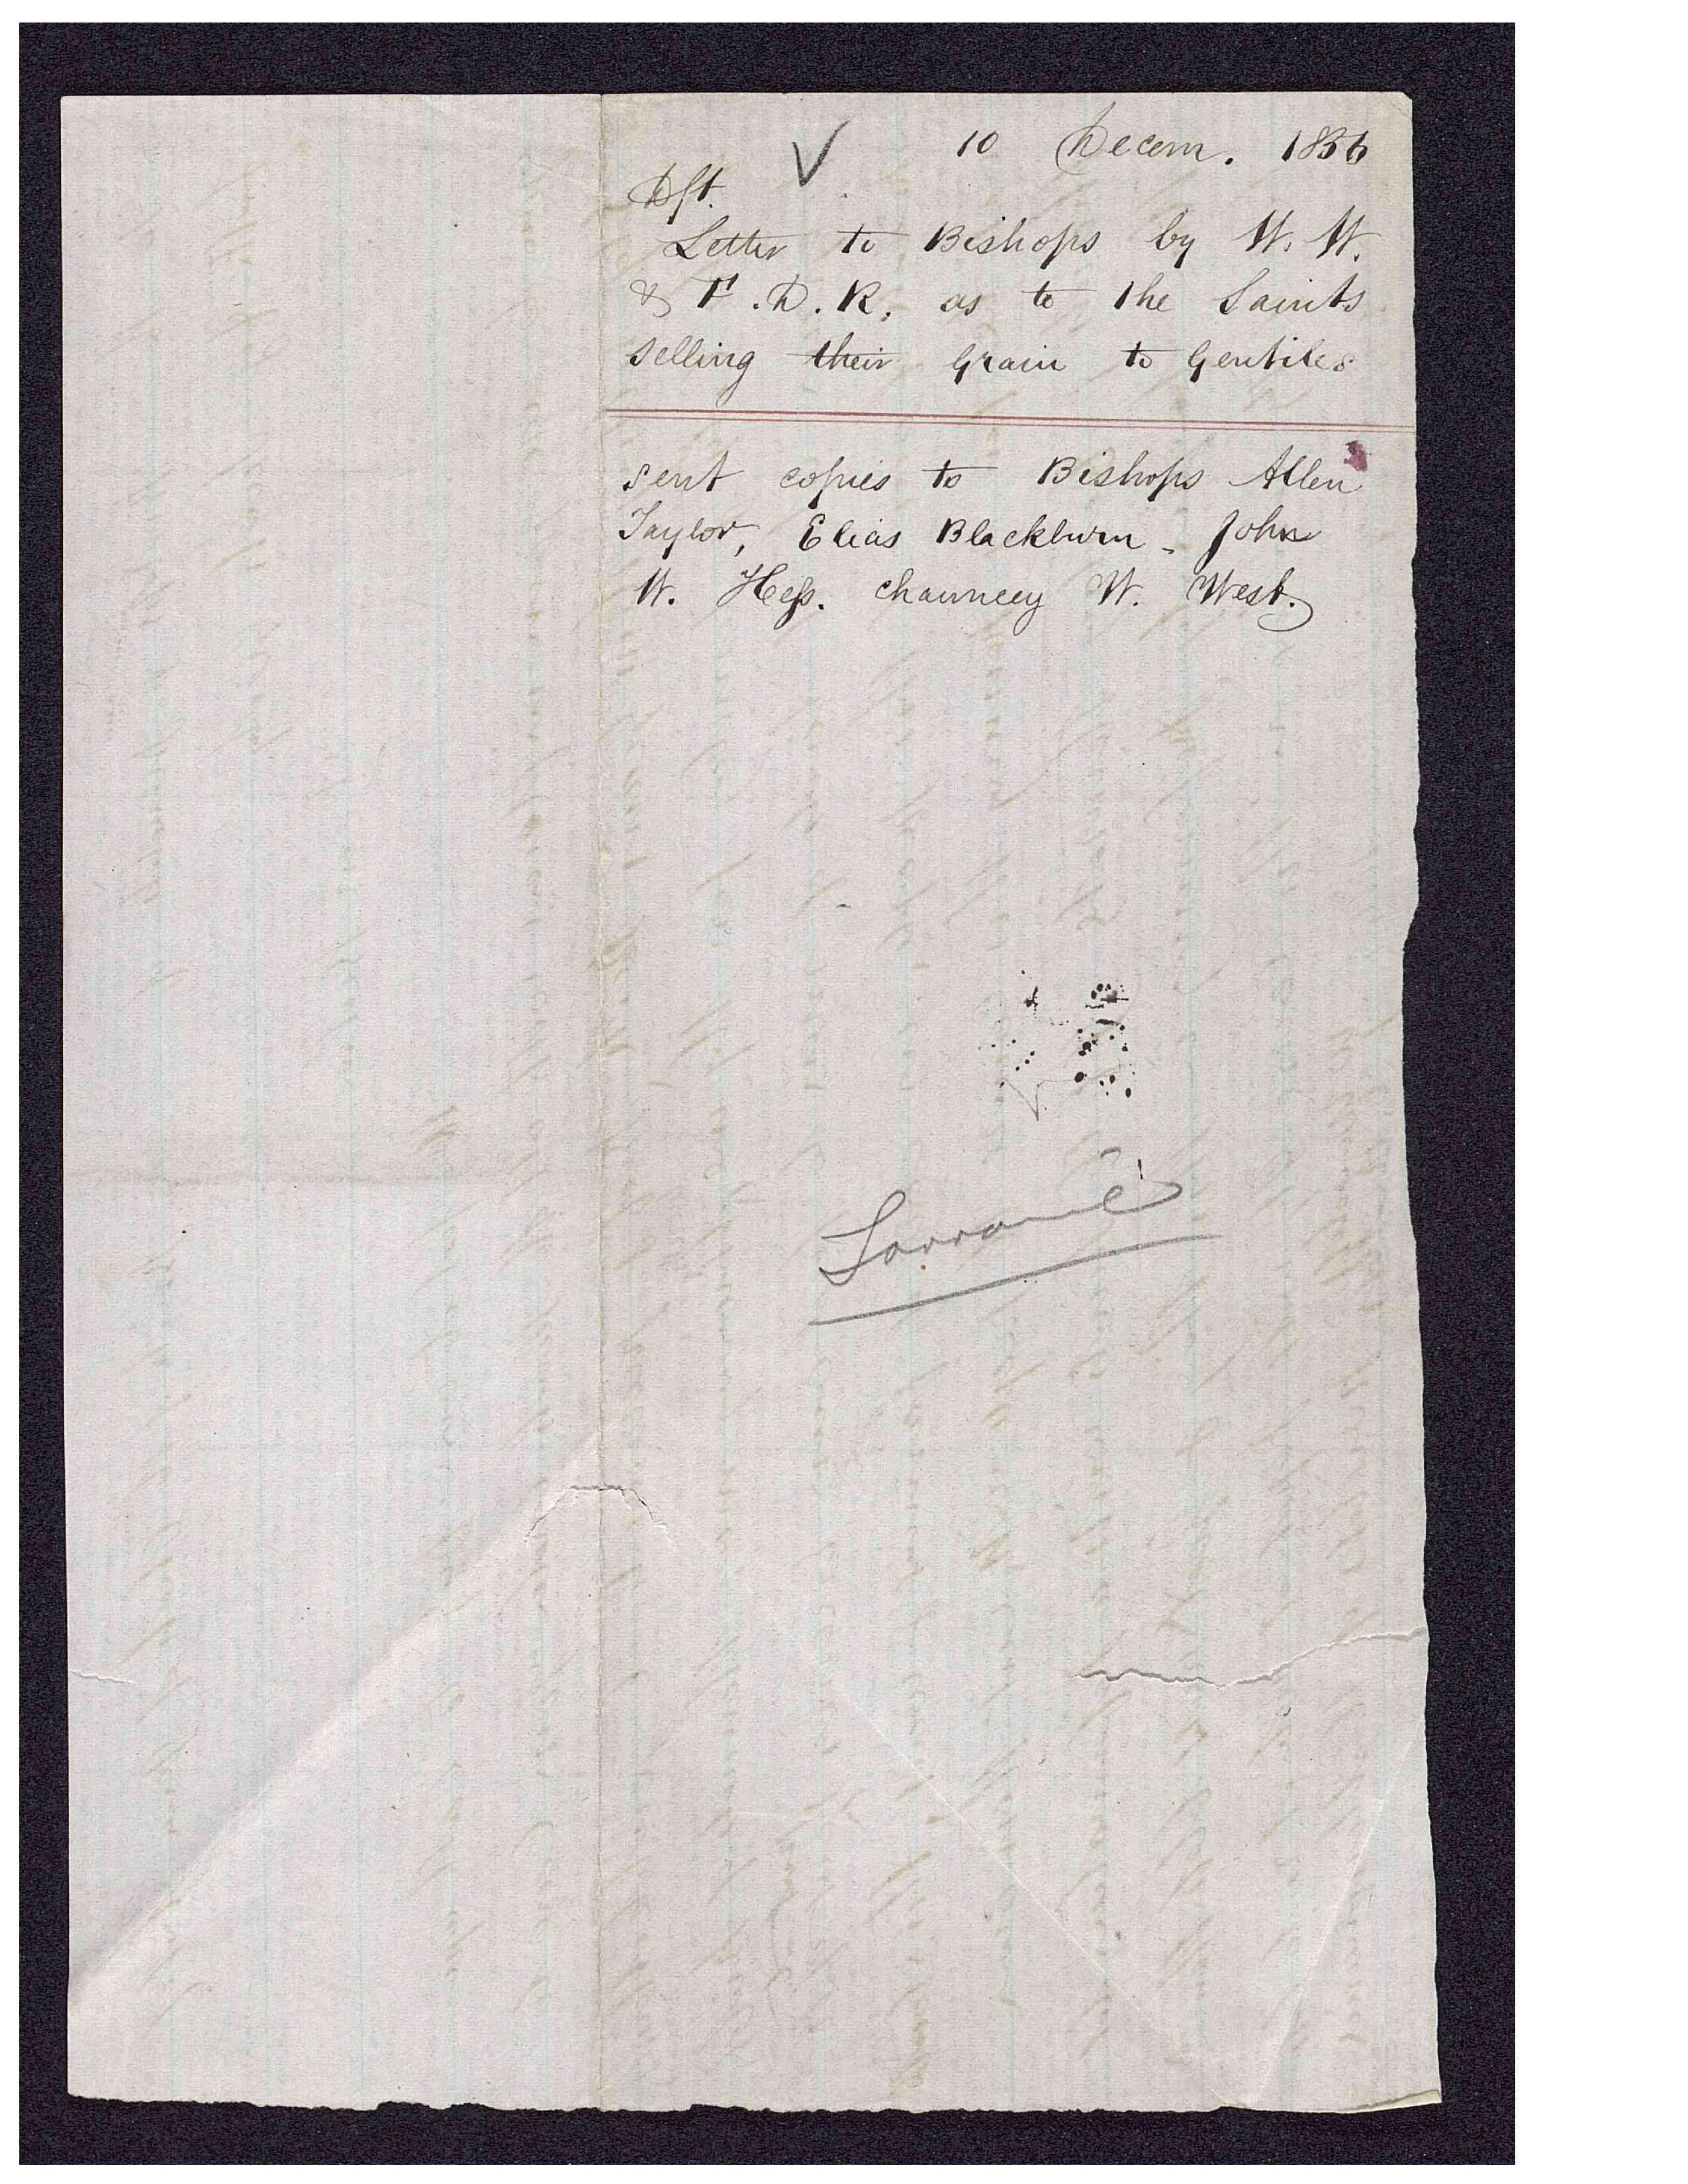 10 Decem. 1856
Dft.
Letter to Bishops by W. W.
& F. D. R. as to the Saints
selling their Grain to Gentiles
sent copies to Bishops Allen
Taylor, Elias Blackburn - John
W. Hess. chauncey W. West.